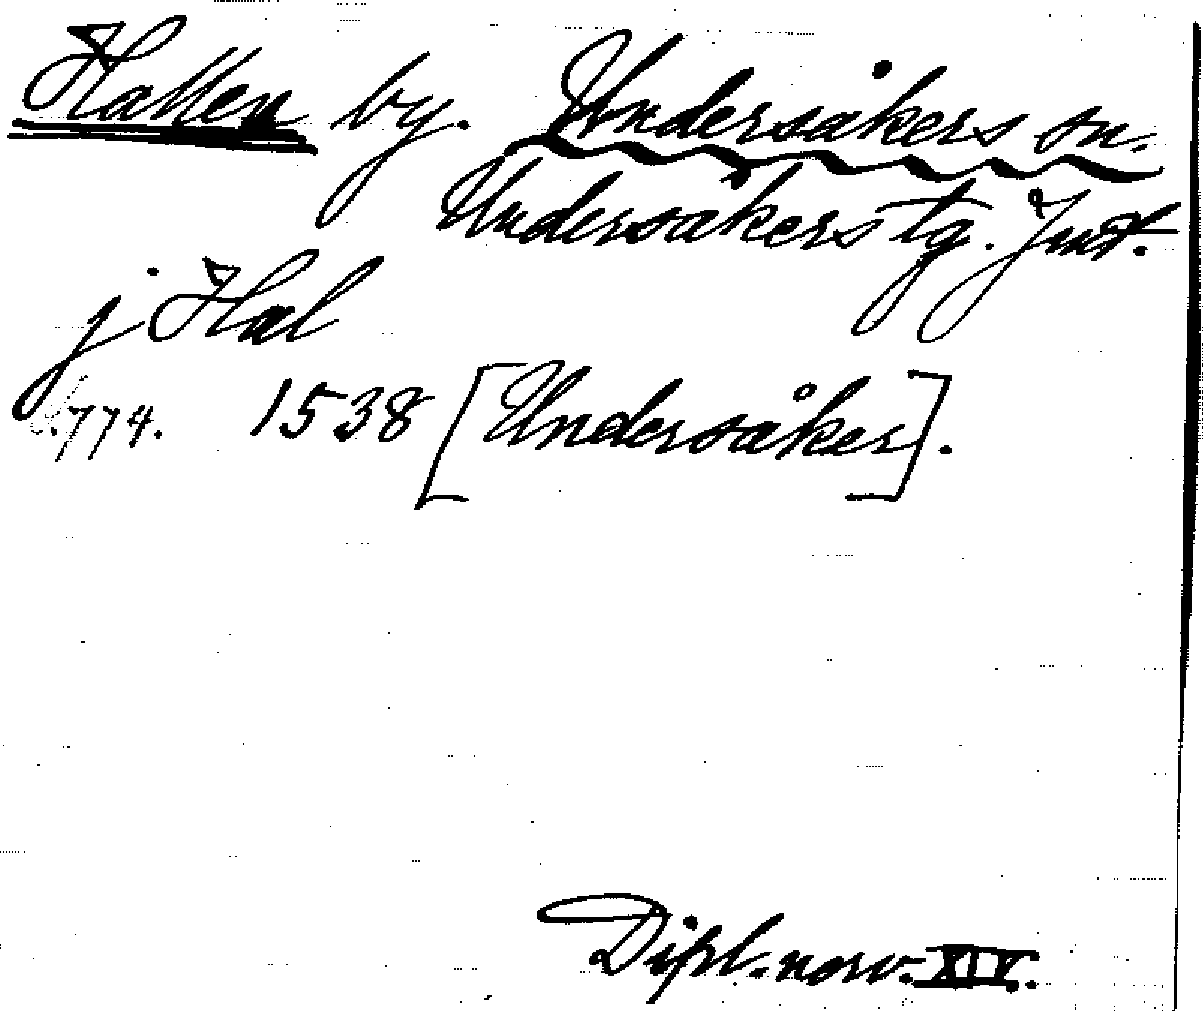 Hallen by. Undersåkers sn.
Undersåkers tg. Jmt.
j Hal
s. 774. 1538 [Undersåker].
Dipl. norv. XIV.